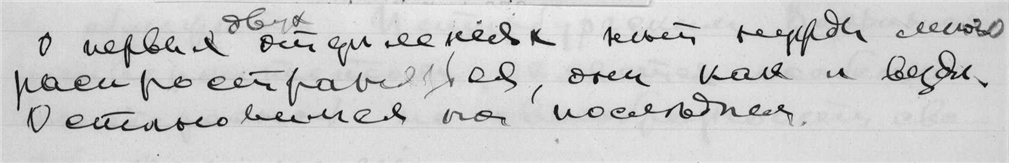 О первых двух отделениях нет нужды много
распространяться, они как и везде.
Остановимся на последнем.